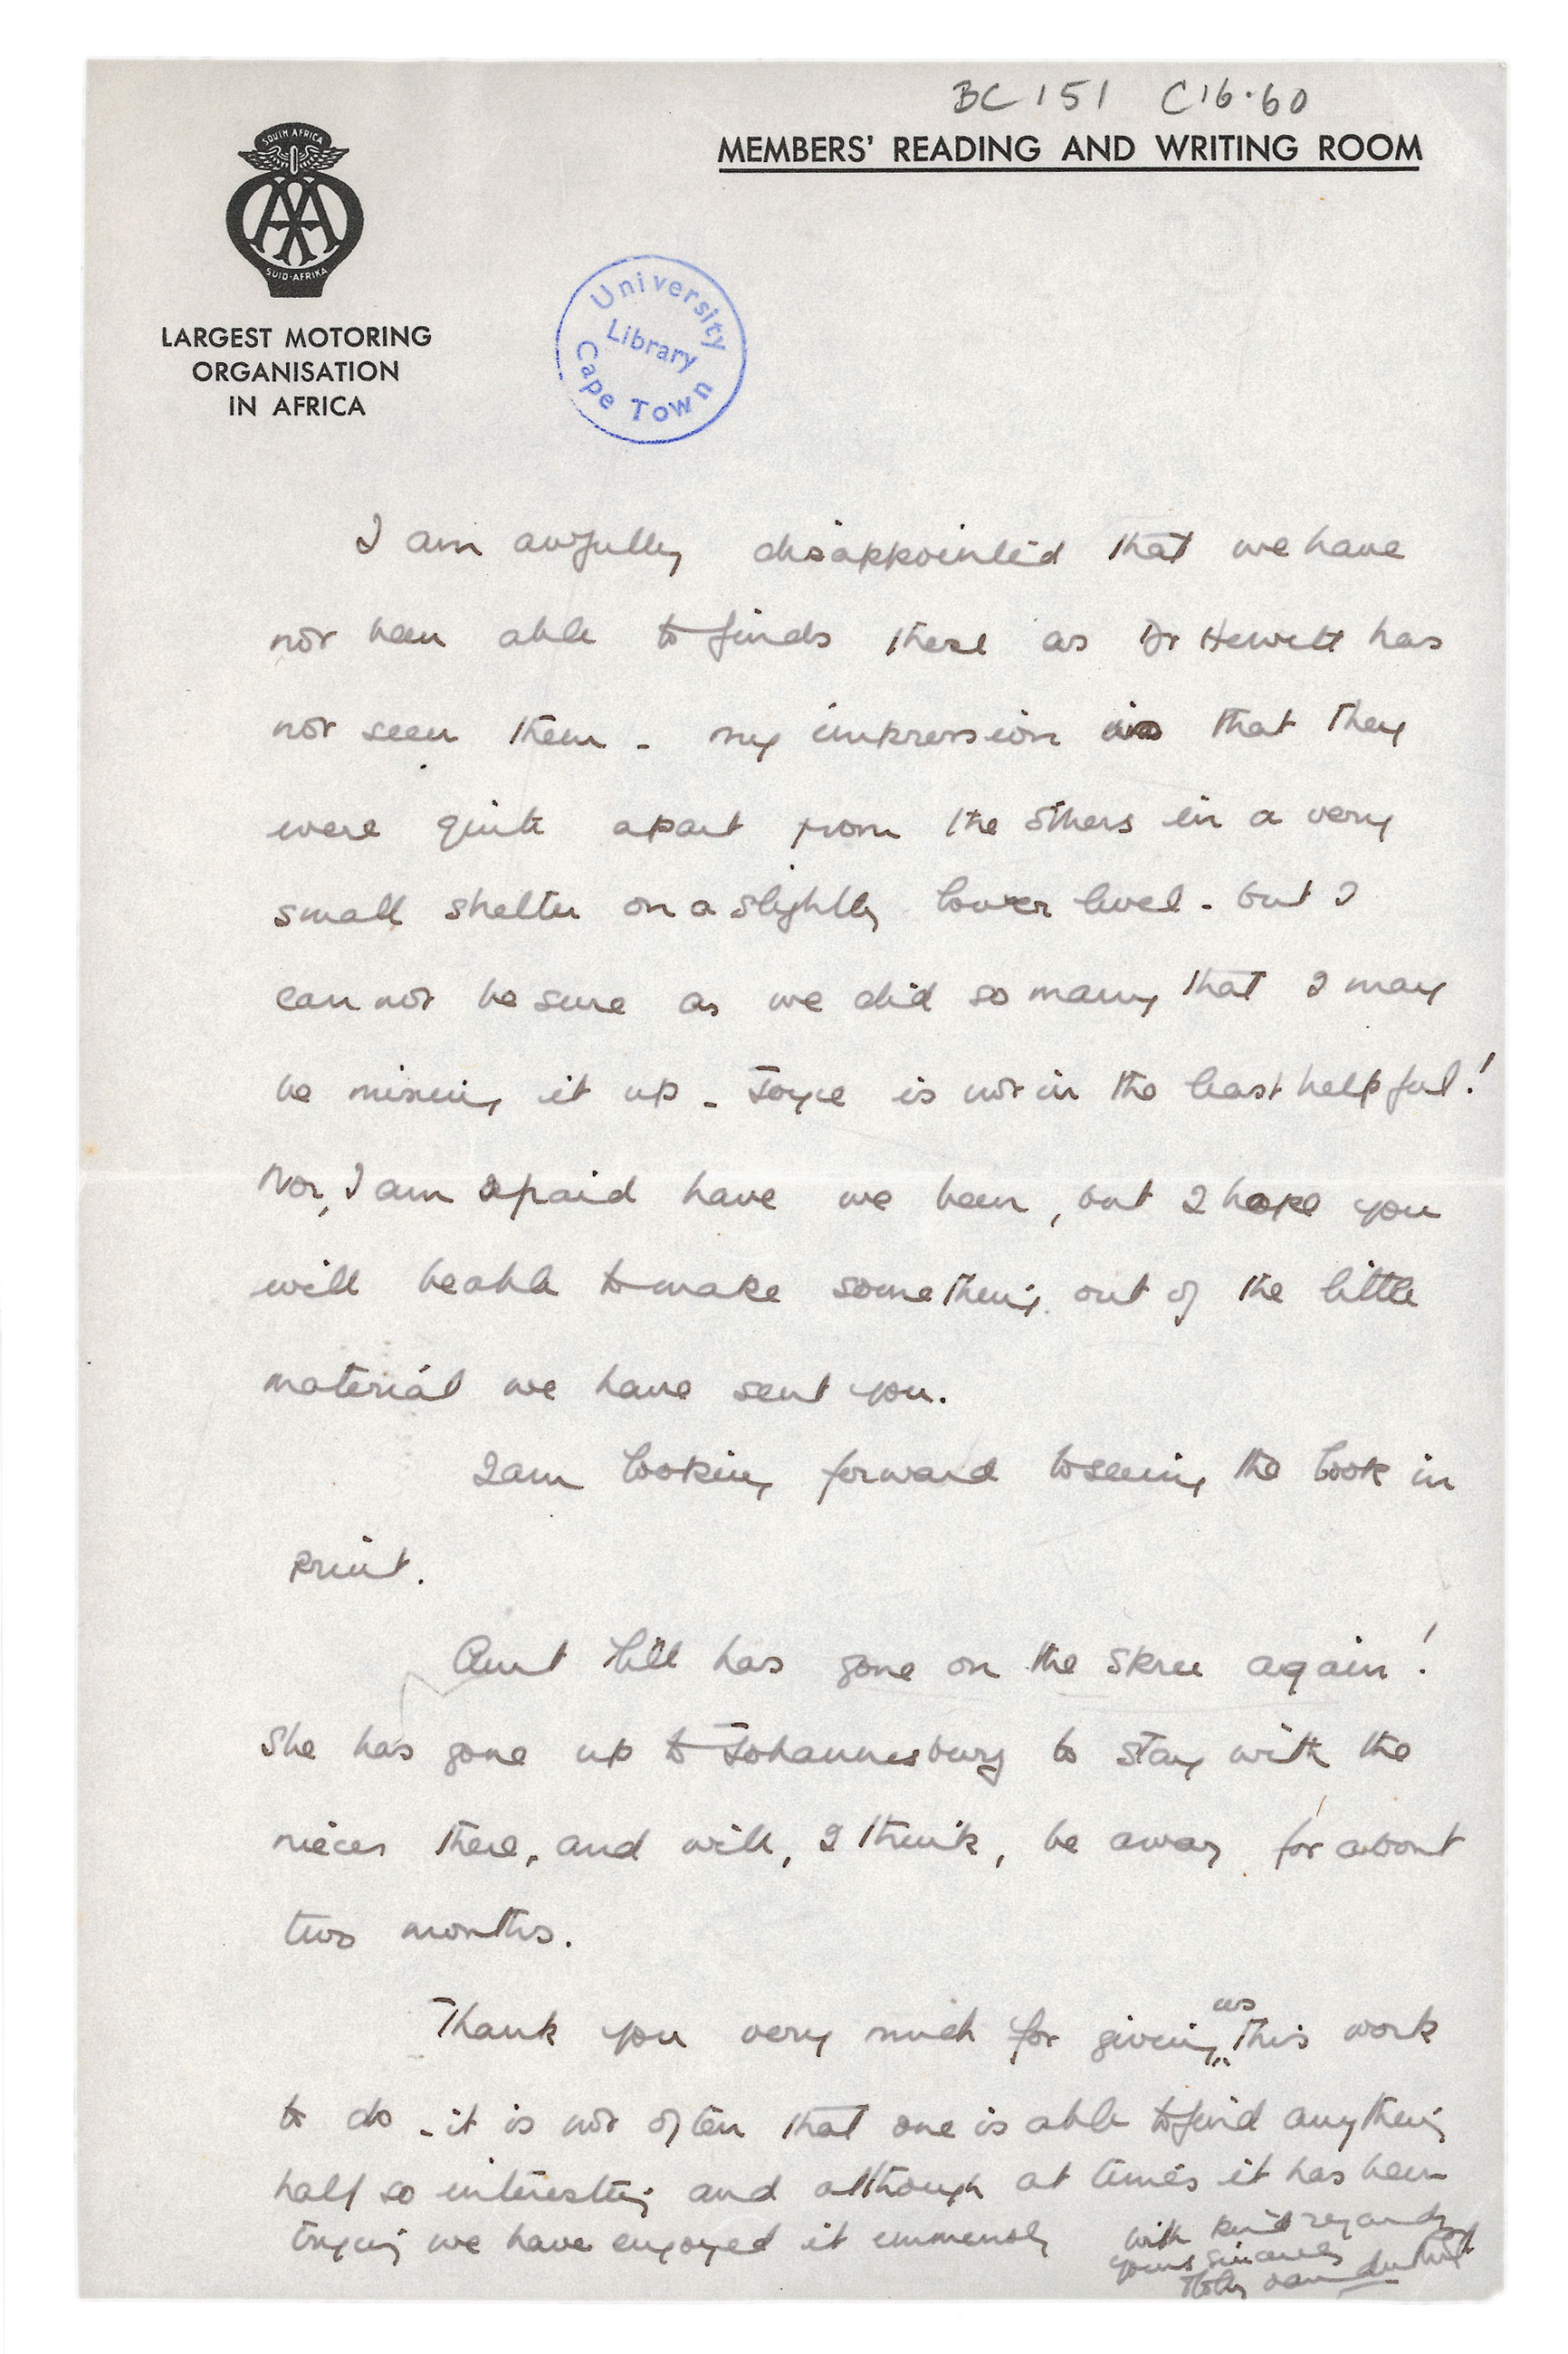 BC 151 C16.60
MEMBERS' READING AND WRITING ROOM
SOUTH AFRICA
AA
SUID-AFRIKA
LARGEST MOTORING
ORGANISATION
IN AFRICA
University
Library
Cape Town
I am awfully disappointed that we have
not been able to finds these as Dr Hewitt has
not seen them - my impression is that they
were quite apart from the others in a very
small shelter on a slightly lower level - but I
can not be sure as we did so many that I may
be mixing it up - Joyce is not in the least helpful!
Nor, I am afraid have we been, but I hope you
will be able to make something out of the little
material we have sent you.
I am looking forward to seeing the book in
print.
Aunt has gone on the skree again!
She has gone up to Johannesburg to stay with the
nieces there, and will, I think, be away for about
two months.
Thank you very much for giving us this work
to do - it is not often that one is able to find anything
half so interesting and although at times it has been
trying we have enjoyed it immensely
with kind regards
yours sincerely
van der